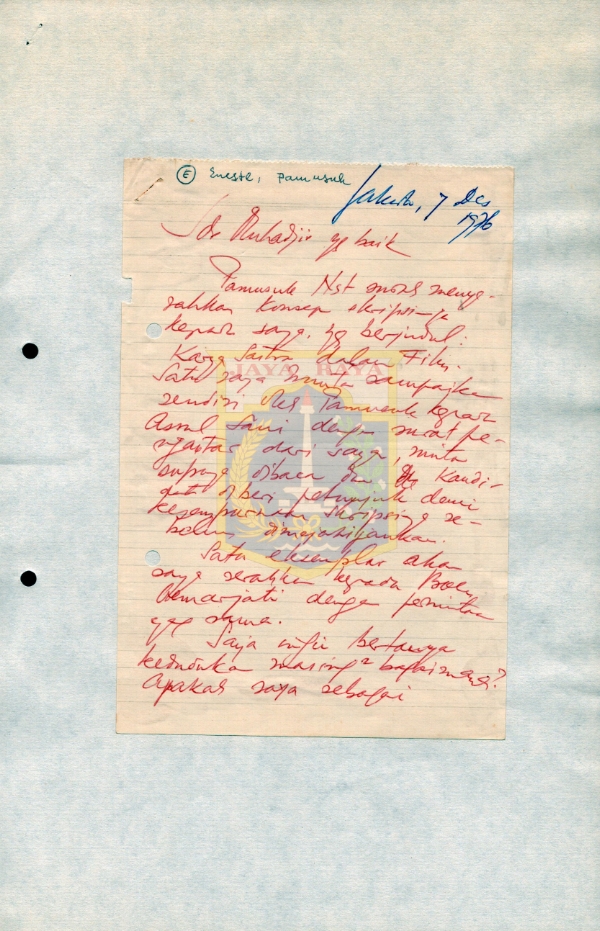 E Eneste, Pamusuk
Jakarta, 7 Des
1976
Sdr Muhadjir yg baik
Pamusuk Nst sudah menye-
rahkan konsep skripsinja
kepada saya, yg berjudul:
Karya Sastra dalam Film.
Satu saya minta sampaikan
sendiri oleh Pamusuk kepada
Asrul Sani dengan surat pe-
ngantar dari saya, minta
supaya dibaca dan Kandi-
dat diberi petunjuk demi
kesempurnaan skripsinya se-
belum dimejahijaukan.
Satu eksemplar akan
saya serahkan kepada Boen
Oemarjati dengan permintaan
yang sama.
Saja ingin bertanya
kedudukan masing2 bagaimana?
Apakah saya sebagai
JAYA RAYA